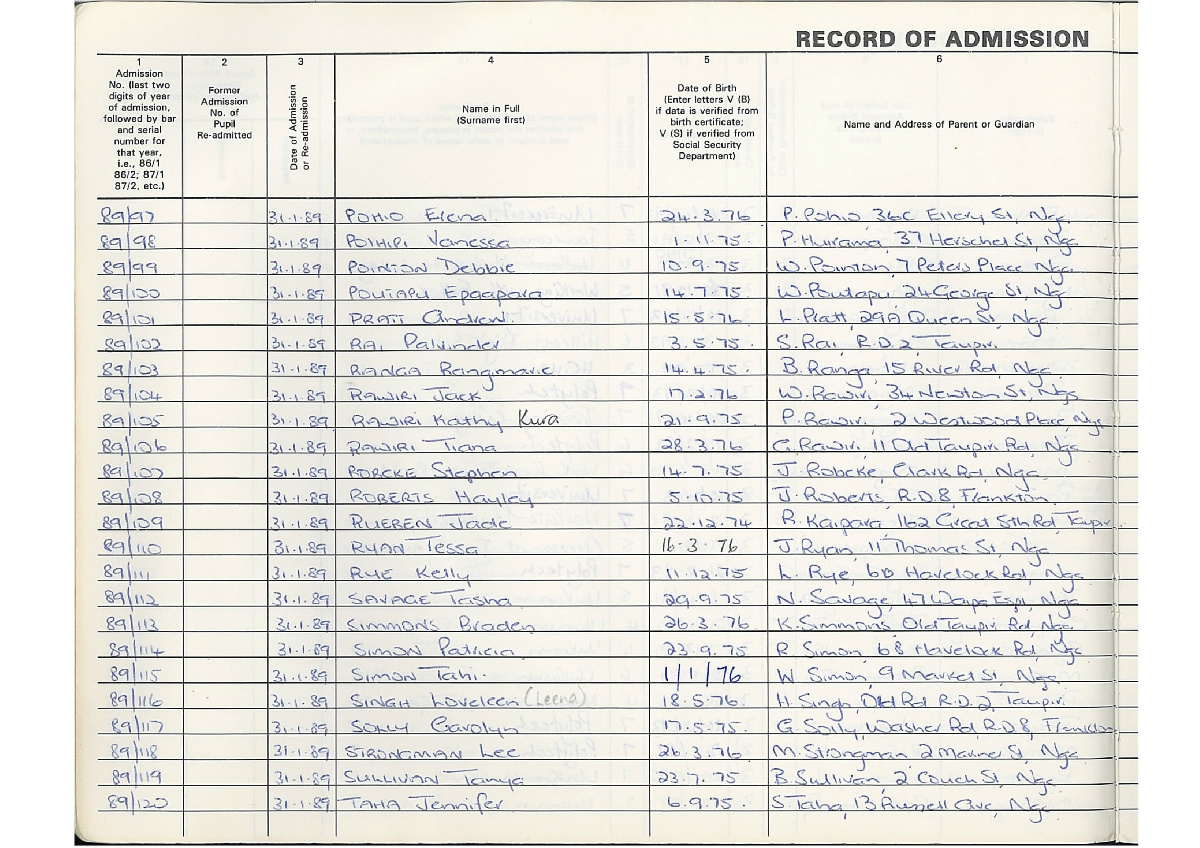 RECORD OF ADMISSION
1 2 3 4 5 6
Admission No. (last two digits of year of admission, followed by bar and serial number for that year, i.e., 86/1 86/2; 87/1 87/2, etc.)
Former Admission No. of Pupil Re-admitted
Date of Admission or Re-admission
Name in Full (Surname first)
Date of Birth (Enter letters V (B) if data is verified from birth certificate; V (S) if verified from Social Security Department)
Name and Address of Parent or Guardian
89/97 31.1.89 POHIO Elena 24.3.76 P. Pohio 36C Ellery St, Nga
89/98 31.1.89 POIHIPI Vanessa 1.11.75. P. Huirama, 37 Herschel St, Nga
89/99 31.1.89 POINTON Debbie 10.9.75 W. Pointon, 7 Peters Place, Nga.
89/100 31.1.89 POUTAPU Epaapara 14.7.75. W. Poutapu, 24 George St, Nga
89/101 31.1.89 PRATT Andrew 15.5.76. L. Pratt, 29A Queen St, Nga.
89/102 31.1.89 RAI Palvinder 3.5.75 S. Rai, R.D.2, Taupiri.
89/103 31.1.89 RANGA Rangimarie 14.4.75. B. Ranga, 15 River Rd, Nga.
89/104 31.1.89 RAWIRI Jack 17.2.76 W. Rawiri, 34 Newton St, Nga
89/105 31.1.89 RAWIRI Kathy Kura 21.9.75 P. Rawiri, 2 Westwood Place, Nga
89/106 31.1.89 RAWIRI Tiana 28.3.76 G. Rawiri, 11 Old Taupiri Rd, Nga
89/107 31.1.89 ROBCKE Stephen 14.7.75 J. Robcke, Clark Rd, Nga.
89/108 31.1.89 ROBERTS Hayley 5.10.75 J. Roberts, R.D.8 Frankton
89/109 31.1.89 RUEBEN Jade 22.12.74 R. Kaipara 162 Great Sth Rd Taupiri.
89/110 31.1.89 RYAN Tessa 16.3.76 J. Ryan, 11 Thomas St, Nga
89/111 31.1.89 RYE Kelly 11.12.75 L. Rye, 6B Havelock Rd, Nga
89/112 31.1.89 SAVAGE Tasha 29.9.75 N. Savage, 47 Waipa Espl, Nga
89/113 31.1.89 SIMMONS Braden 26.3.76 K. Simmons, Old Taupiri Rd, Nga.
89/114 31.1.89 SIMON Patricia 23.9.75 R. Simon, 68 Havelock Rd, Nga
89/115 31.1.89 SIMON Tahi. 1/1/76 W Simon, 9 Market St, Nga
89/116 31.1.89 SINGH Loveleen (Leena) 18.5.76. H. Singh, Old Rd R.D.2, Taupiri
89/117 31.1.89 SOLLY Carolyn 17.5.75. G. Solly, Washer Rd, R.D.8, Frankton
89/118 31.1.89 STRONGMAN Lee 26.3.76 M. Strongman, 2 Mariner St, Nga
89/119 31.1.89 SULLIVAN Tanya 23.7.75 B. Sullivan, 2 Couch St, Nga
89/120 31.1.89 TAHA Jennifer 6.9.75. S Taha, 13 Russell Ave, Nga